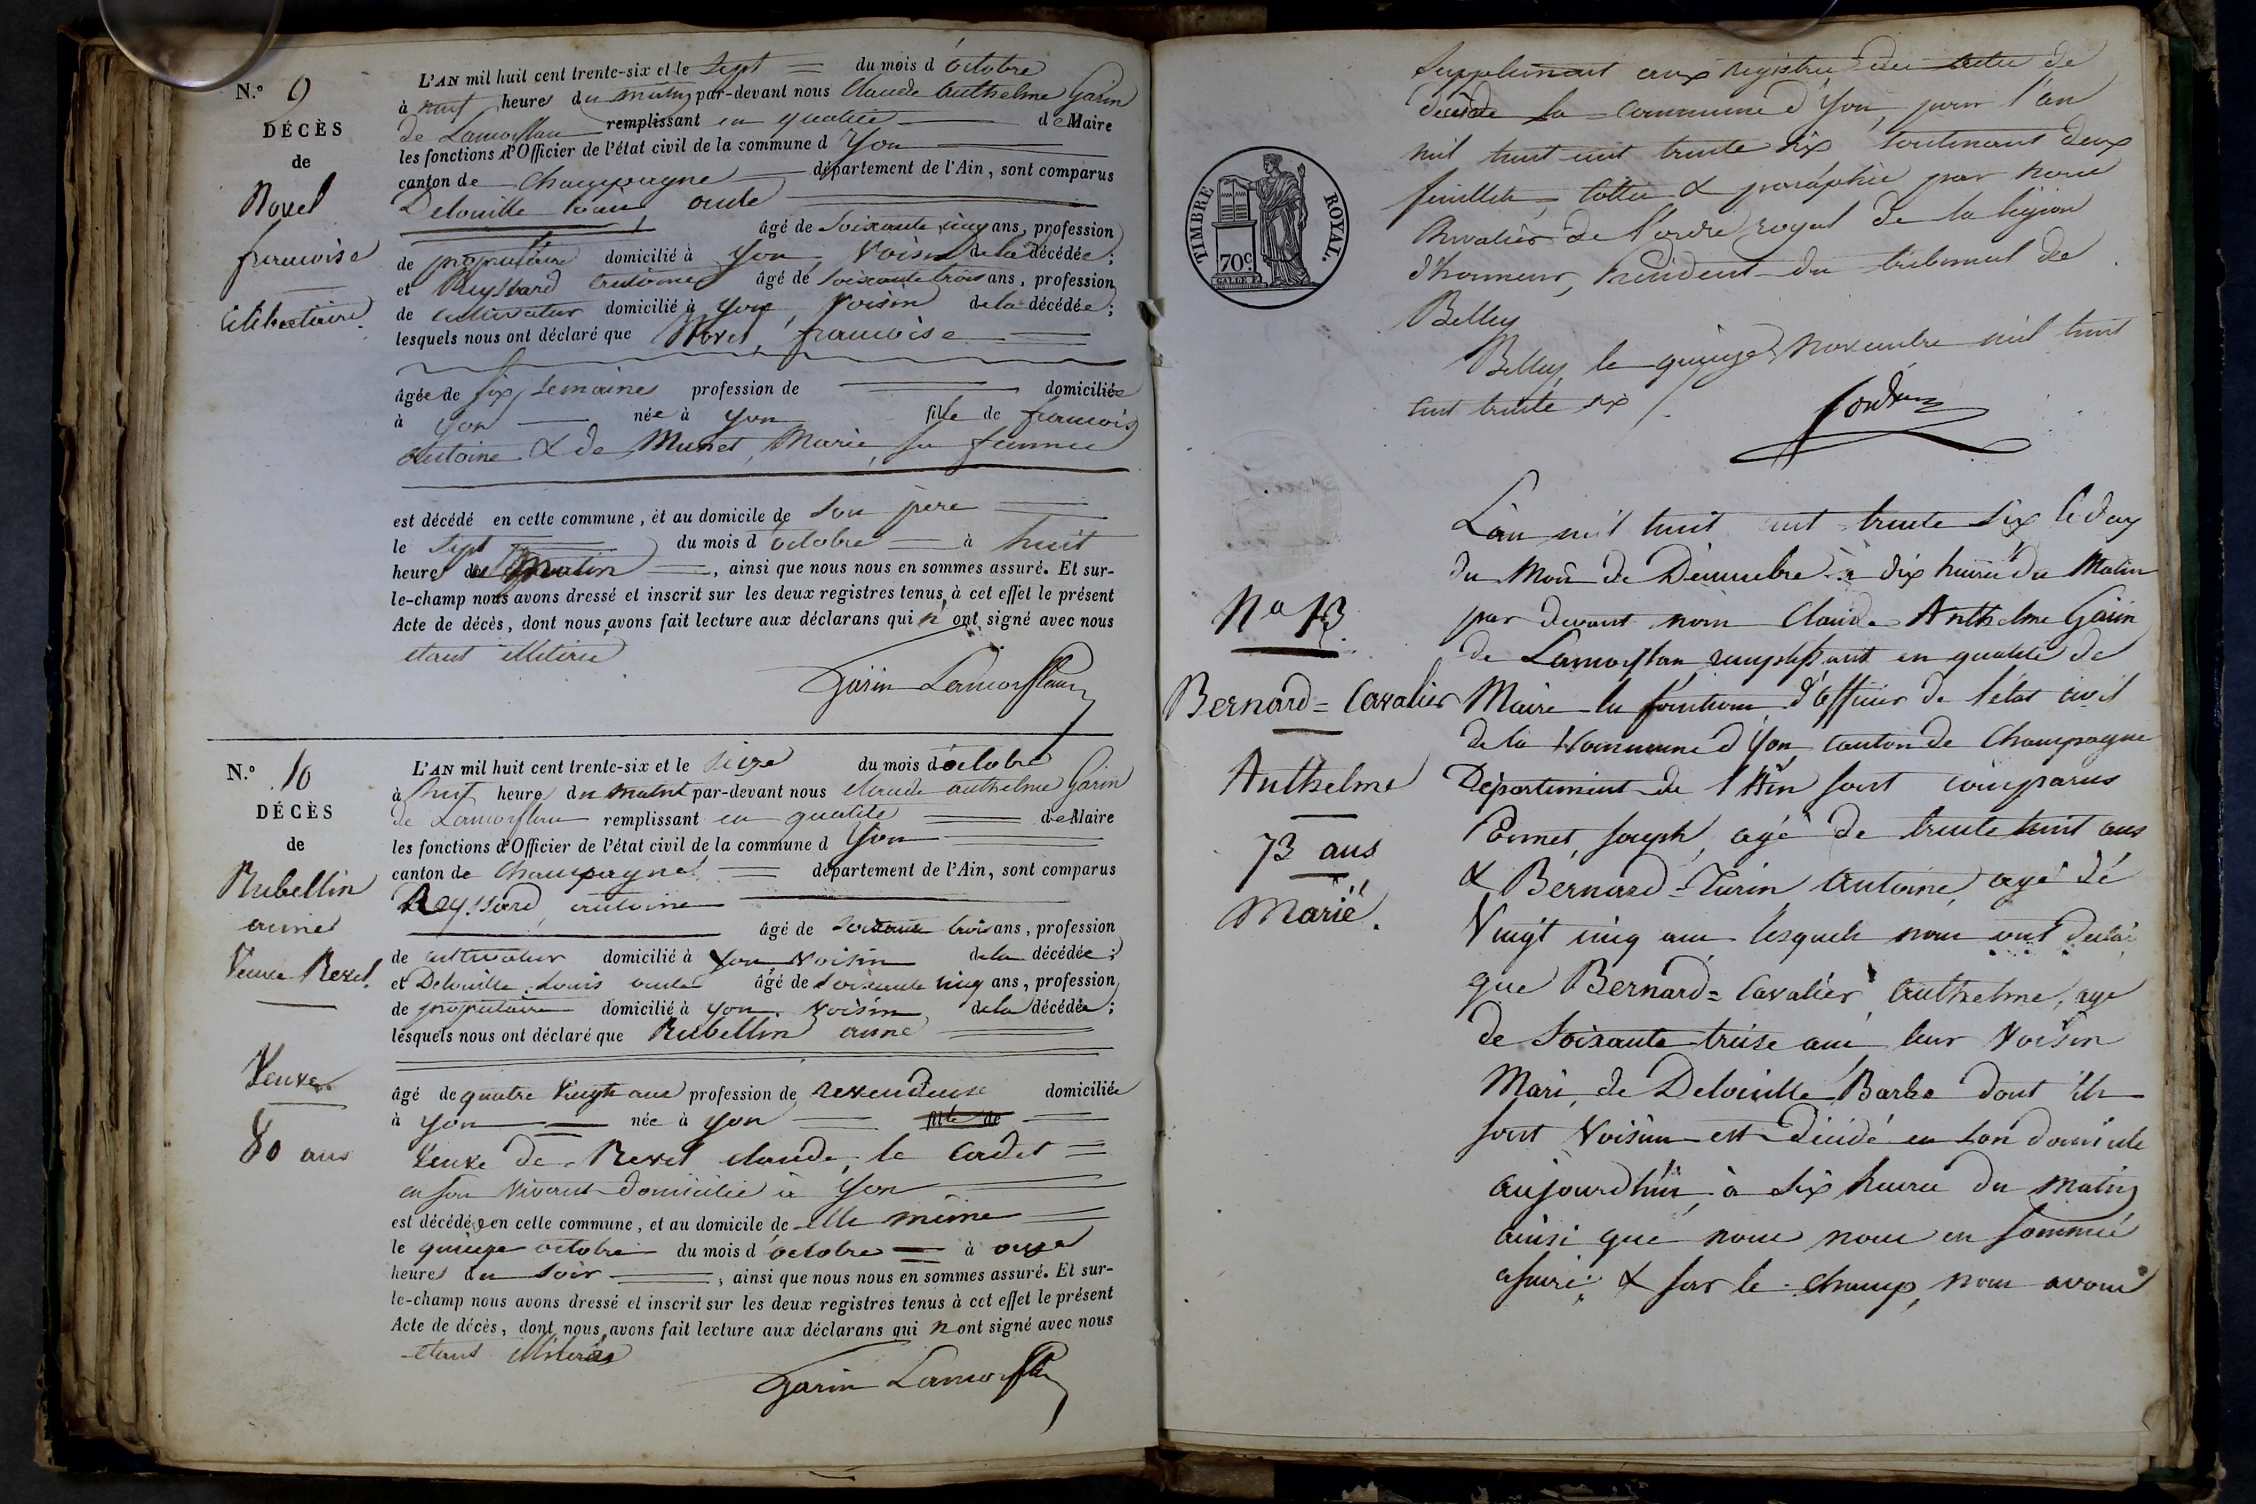 N.° 9
DÉCÈS
de
Novel
francoise
Célibataire.
L'AN mil huit cent trente-six et le Sept du mois d'octobre
à neuf heures du matin par-devant nous Claude Anthelme Garin
de Lamorflan remplissant en qualité de Maire
les fonctions d'Officier de l'état civil de la commune d Yon
canton de Champagne département de l'Ain, sont comparus
Delouille oncle
âgé de soixante cinq ans, profession
de propriétaire domicilié à Yon, Voisin de la décédée;
et Reyssard antoine âgé de soixante trois ans, profession
de cultivateur domicilié à Yon, Voisin de la décédée;
lesquels nous ont déclaré que Novel, francoise
âgée de six semaines profession de domiciliée
à Yon née à Yon fille de francois
antoine & de Munet, Marie, sa femme
est décédé en cette commune, et au domicile de son père
le sept du mois d'octobre à huit
heures du Matin, ainsi que nous nous en sommes assuré. Et sur-
le-champ nous avons dressé et inscrit sur les deux registres tenus à cet effet le présent
Acte de décès, dont nous avons fait lecture aux déclarans qui n'ont signé avec nous
étant illitérés
Garin Lamorflan
N.° 10
DÉCÈS
de
Rubellin
anne
Veuve Revel.
Veuve
80 ans
L'AN mil huit cent trente-six et le seize du mois d'octobre
à huit heure du matin par-devant nous claude anthelme Garin
de Lamorflan remplissant en qualité de Maire
les fonctions d'Officier de l'état civil de la commune d Yon
canton de Champagne département de l'Ain, sont comparus
Reyssard antoine
âgé de soixante trois ans, profession
de cultivateur domicilié à Yon Voisin de la décédée;
et Delouille Louis oncle âgé de soixante cinq ans, profession
de propriétaire domicilié à Yon. Voisin de la décédée;
lesquels nous ont déclaré que Rubellin anne
âgé de quatre Vingts ans profession de revendeuse domiciliée
à Yon née à Yon fille de
Veuve de Revel claude, le Cadet
en son vivant domicilié à Yon
est décédée en cette commune, et au domicile de elle même
le quinze octobre du mois d'octobre à onze
heures du soir; ainsi que nous nous en sommes assuré. Et sur-
le-champ nous avons dressé et inscrit sur les deux registres tenus à cet effet le présent
Acte de décès, dont nous avons fait lecture aux déclarans qui n ont signé avec nous
étant illitérés
Garin Lamorflan
TIMBRE ROYAL.
70c
Supplément aux registres des actes de
décès de la commune d'Yon, pour l'an
mil huit cent trente six, contenant deux
feuillets, cottés & paraphés par nous
Chevalier de l'ordre royal de la légion
d'honneur, Président du tribunal de
Belley
Belley, le quinze Novembre mil huit
cent trente six
N° 13
Bernard = Cavalier
Anthelme
73 ans
Marié.
L'an mil huit cent trente six le dix
du Mois de Décembre à dix heures du Matin
par devant nous Claude Anthelme Garin
de Lamorflan remplissant en qualité de
Maire les fonctions d'officier de l'état civil
de la Commune d'Yon, canton de Champagne
Département de l'Ain sont comparus
Joseph, agé de trente huit ans
& Bernard = Turin Antoine, agé de
Vingt cinq ans lesquels nous ont déclaré
que Bernard = Cavalier Anthelme, agé
de soixante treize ans, leur Voisin
Mari de Delouille Barbe dont ils
sont Voisins est décédé en son domicile
aujourd'hui, à six heures du matin
ainsi que nous nous en sommes
assuré; & sur le champ, nous avons